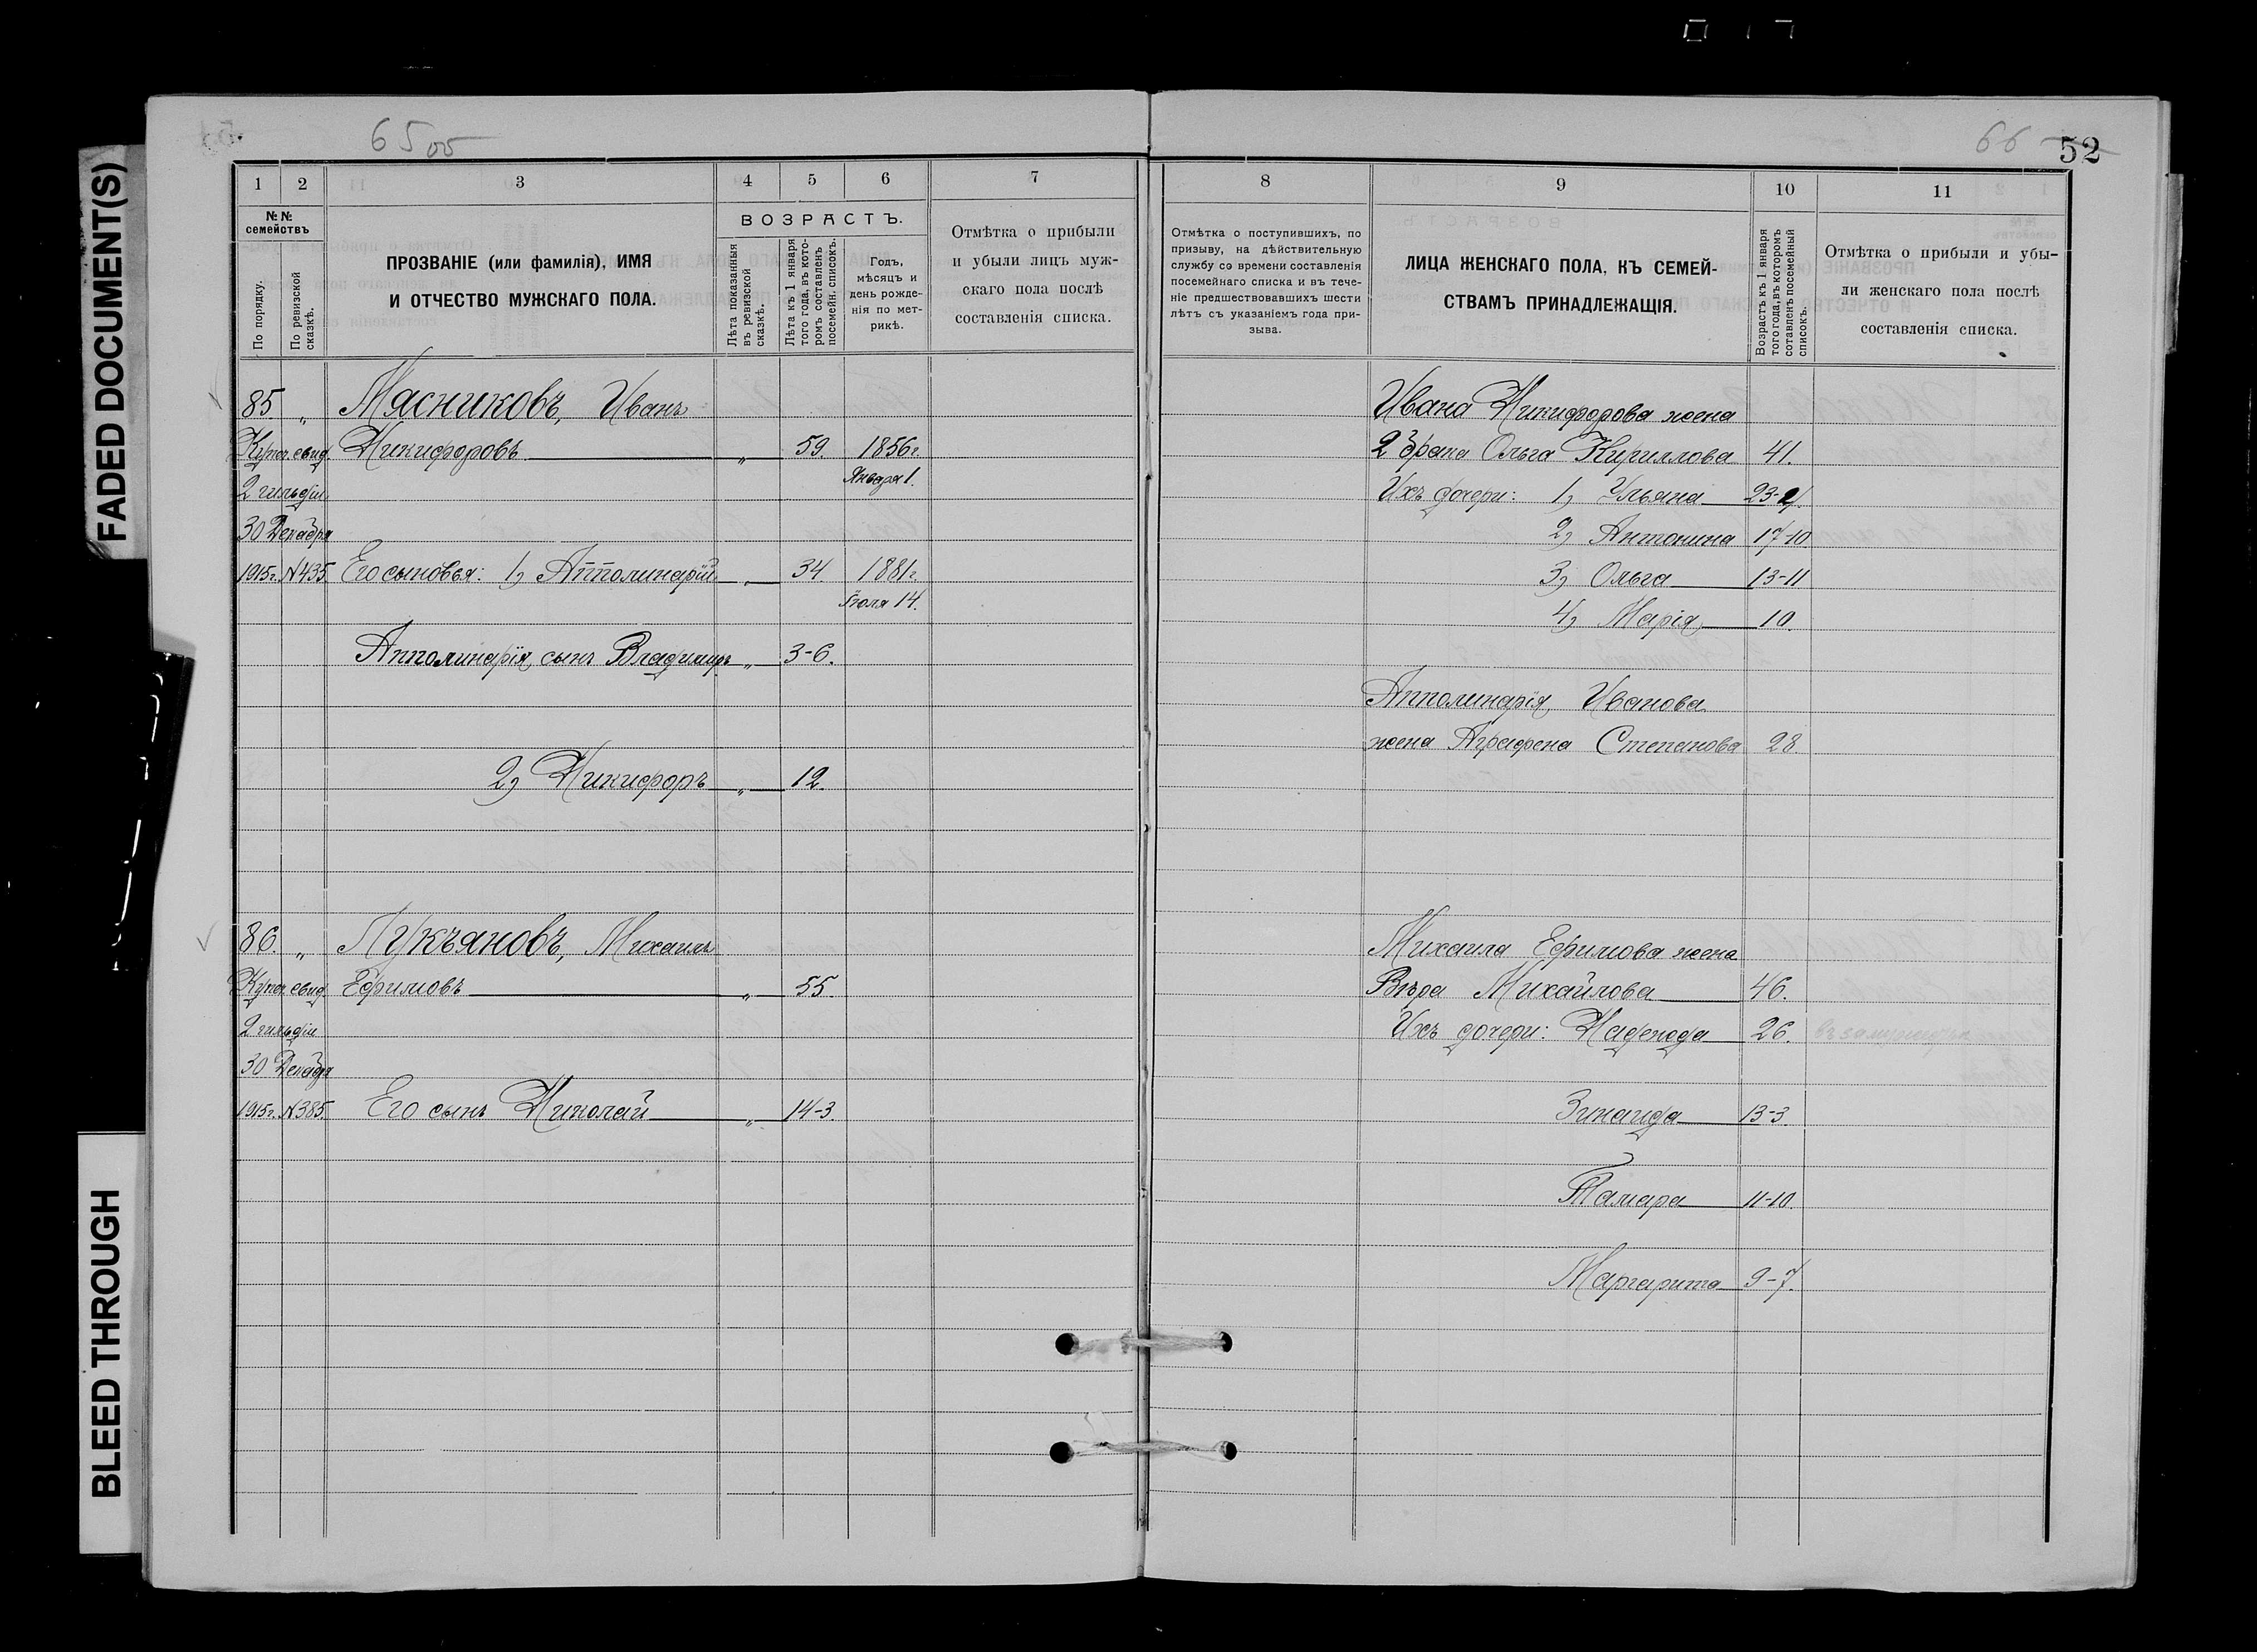 FADED DOCUMENT(S)
BLEED THROUGH
65 об
66
52
1 2 3 4 5 6 7
№№ семействъ
По порядку.
По ревизской сказкѣ.
ПРОЗВАНІЕ (или фамилія), ИМЯ
И ОТЧЕСТВО МУЖСКАГО ПОЛА.
ВОЗРАСТЪ.
Лѣта показанныя въ ревизской сказкѣ.
Лѣта къ 1 января того года, въ которомъ составленъ посемейн. списокъ.
Годъ, мѣсяцъ и день рожденія по метрикѣ.
Отмѣтка о прибыли
и убыли лицъ муж-
скаго пола послѣ
составленія списка.
85 " Мясниковъ, Иванъ
Купеч. свид. Никифоровъ " 59. 1856г.
Января 1.
2 гильдіи
30 Декабря
1915г. №435. Его сыновья: 1, Апполинарій " 34 1881г.
Іюля 14.
Апполинарія сынъ Владимиръ " 3-6.
2, Никифоръ " 12.
86. " Лукъяновъ, Михаилъ
Купеч. свид. Ефимовъ " 55.
2 гильдіи
30 Декабря
1915г. №385. Его сынъ Николай " 14-3.
8 9 10 11
Отмѣтка о поступившихъ, по
призыву, на дѣйствительную
службу со времени составленія
посемейнаго списка и въ тече-
ніе предшествовавшихъ шести
лѣтъ съ указаніемъ года при-
зыва.
ЛИЦА ЖЕНСКАГО ПОЛА, КЪ СЕМЕЙ-
СТВАМЪ ПРИНАДЛЕЖАЩІЯ.
Возрастъ къ 1 января того года, въ которомъ сотавленъ посемейный списокъ.
Отмѣтка о прибыли и убы-
ли женскаго пола послѣ
составленія списка.
Ивана Никифорова жена
2 брака Ольга Кириллова 41.
Ихъ дочери: 1, Ульяна
2, Антонина 17-10
3, Ольга 13-11
4, Марія 10.
Апполинарія Иванова
жена Аграфена Степанова 28.
Михаила Ефимова жена
Вѣра Михайлова 46.
Ихъ дочери: Надежда 26. въ замужествѣ
Зинаида 13-3.
Тамара 11-10.
Маргарита 9-7.